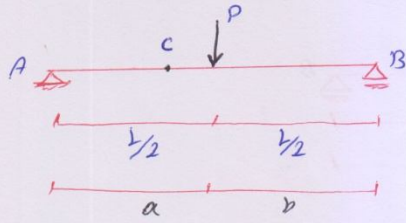 P
A C B
L/2 L/2
a b